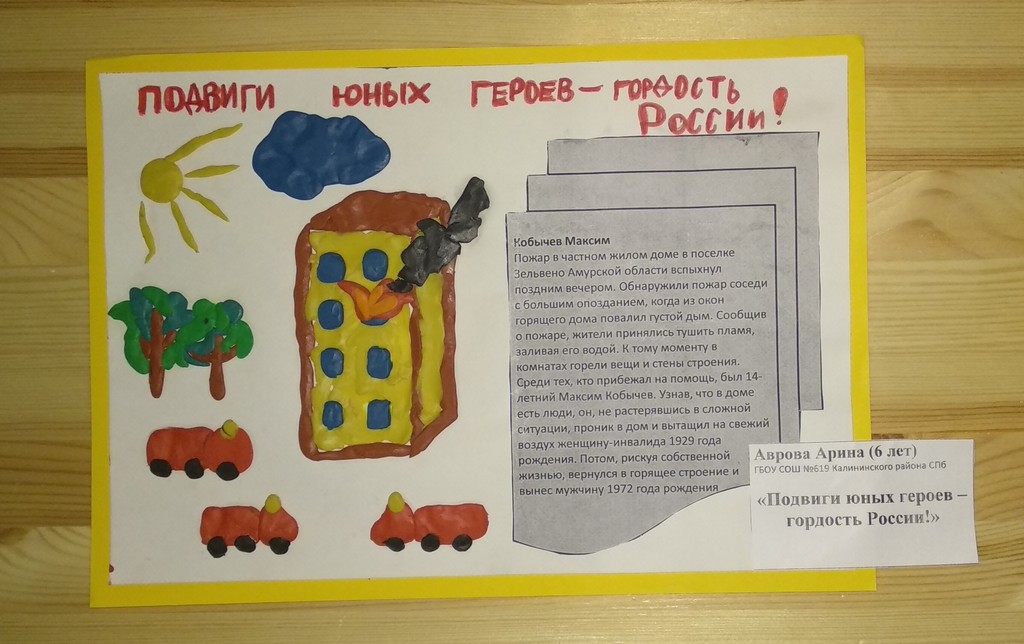 ПОДВИГИ ЮНЫХ ГЕРОЕВ – ГОРДОСТЬ
РОССИИ!
Кобычев Максим
Пожар в частном жилом доме в поселке
Зельвено Амурской области вспыхнул
поздним вечером. Обнаружили пожар соседи
с большим опозданием, когда из окон
горящего дома повалил густой дым. Сообщив
о пожаре, жители принялись тушить пламя,
заливая его водой. К тому моменту в
комнатах горели вещи и стены строения.
Среди тех, кто прибежал на помощь, был 14-
летний Максим Кобычев. Узнав, что в доме
есть люди, он, не растерявшись в сложной
ситуации, проник в дом и вытащил на свежий
воздух женщину-инвалида 1929 года
рождения. Потом, рискуя собственной
жизнью, вернулся в горящее строение и
вынес мужчину 1972 года рождения
Аврова Арина (6 лет)
ГБОУ СОШ №619 Калининского района СПб
«Подвиги юных героев –
гордость России!»